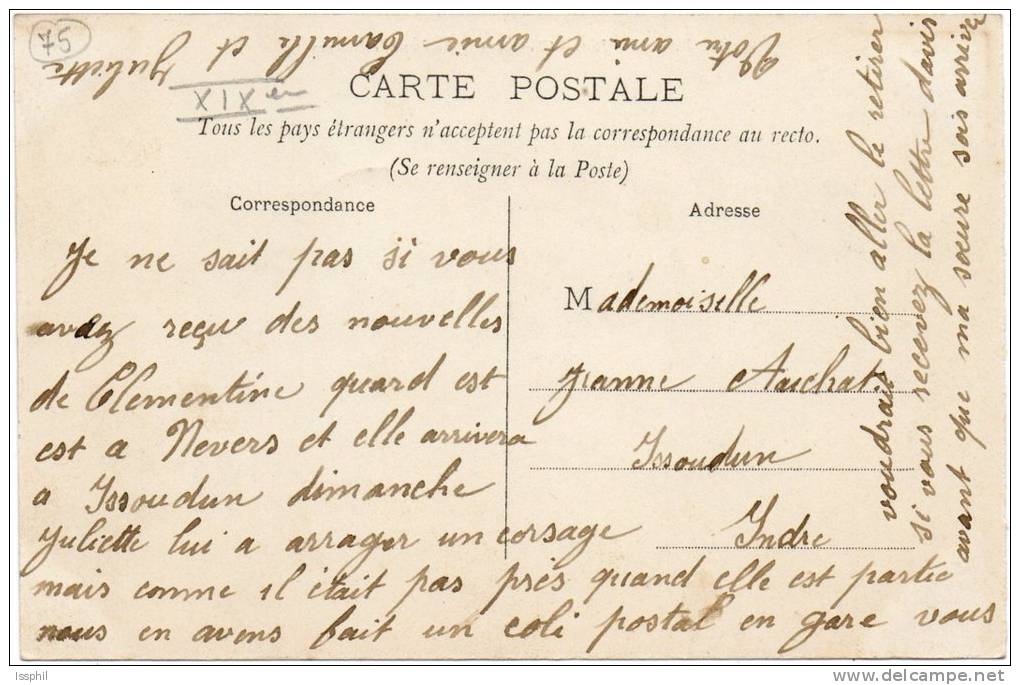 75
XIXem
CARTE POSTALE
Tous les pays étrangers n'acceptent pas la correspondance au recto.
(Se renseigner à la Poste)
Correspondance
Je ne sait pas si vous
avez reçu des nouvelles
de Clementine quard est
est a Nevers et elle arrivera
a Issoudun dimanche
Juliette lui a arrager un corsage
mais comme il était pas près quand elle est partie
nous en avons fait un coli postal en gare vous
voudrait bien aller le retirer
si vous recevez la lettre davis
avant que ma sœure sois arrivé
Votre ami et amie Camille et Juliette
Adresse
Mademoiselle
Jeanne
Issoudun
Indre
Issphil
delcampe.net